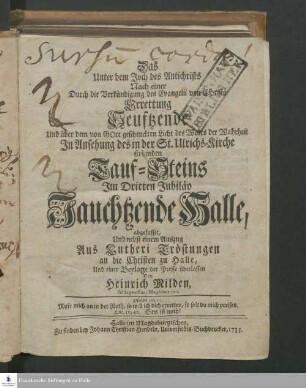 Sursū corda!
Das
Unter dem Joch des Antichrists
Nach einer
Durch die Verkündigung des Evangelii von Christo
Errettung
Seufftzende
Und über dem von GOtt geschenckten Licht des Worts der Wahrheit
In Ansehung des in der St. Ulrichs-Kirche
stehenden
Tauf-Steins
Im Dritten Jubiläo
Jauchtzende Halle,
abgefasset,
Und nebst einem Auszug
Aus Lutheri Tröstungen
an die Christen zu Halle,
Und einer Beylage der Presse überlassen
Von
Heinrich Milden,
Ruffe mich an in der Noth, so will ich dich erretten, so solt du mich preisen.
Halle im Magdeburgischen,
Zu finden bey Johann Christian Hendeln, Universitäts-Buchdrucker, 1735.
Franckesche Stiftungen zu Halle